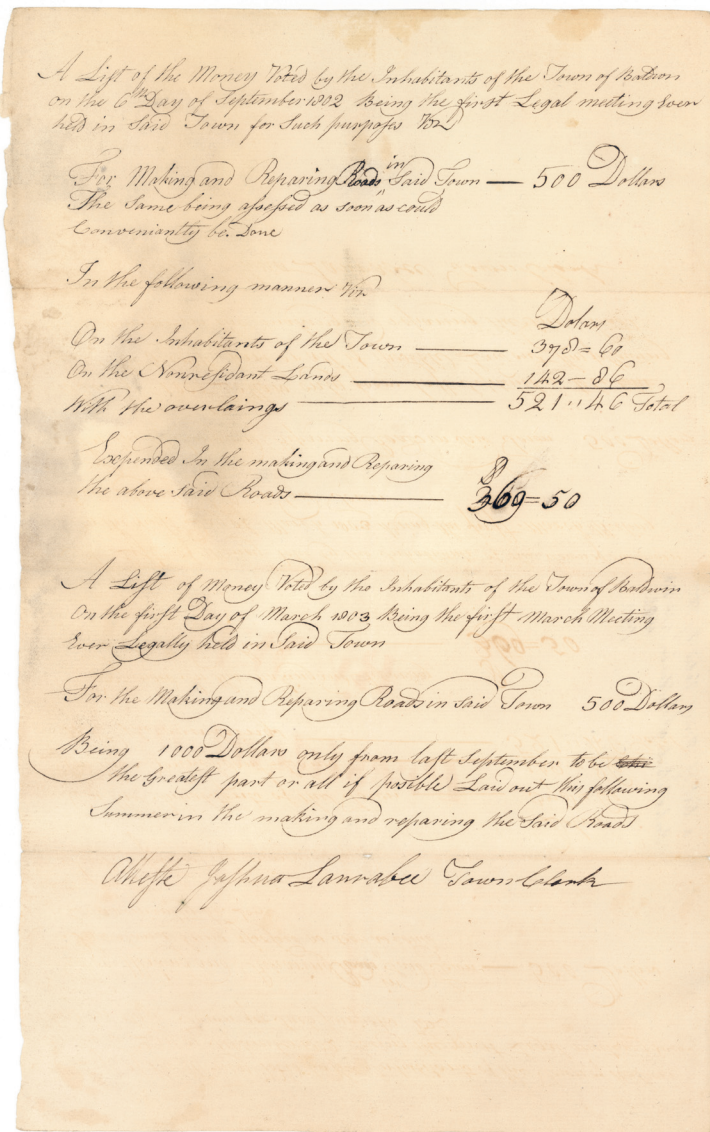 A List of the Money Voted by the Inhabitants of the Town of Baldwin
on the 6th Day of September 1802 Being the first Legal meeting Ever
held in Said Town for Such purposes Viz
For Making and Reparing Roads in Said Town — 500 Dollars
The Same being assessed as soon as could
Conveniantly be Done
In the following manner Viz
Dolars
On the Inhabitants of the Town — 378=60
On the Nonresidant Lands — 142–86
With the overlaings — 521..46 Total
Expended In the making and Reparing
the above said Roads — $ 369=50
A List of Money Voted by the Inhabitants of the Town of Baldwin
On the first Day of March 1803 Being the first March Meeting
Ever Legally held in Said Town
For the Making and Reparing Roads in said Town 500 Dollars
Being 1000 Dollars only from last September to be
the Greatest part or all if posible Laid out this following
Summer in the making and reparing the Said Roads
Atteste Joshua Larrabee Town Clerk